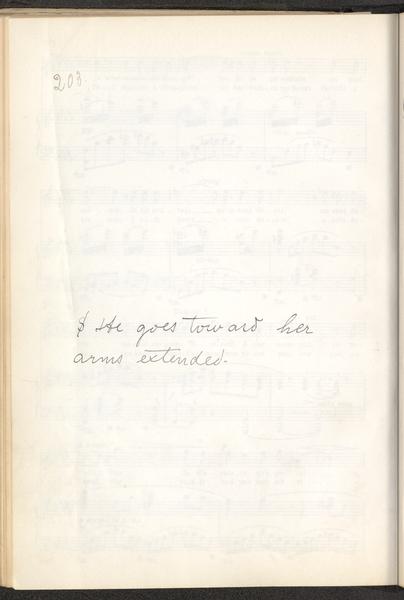 203.
$ He goes toward her
arms extended.